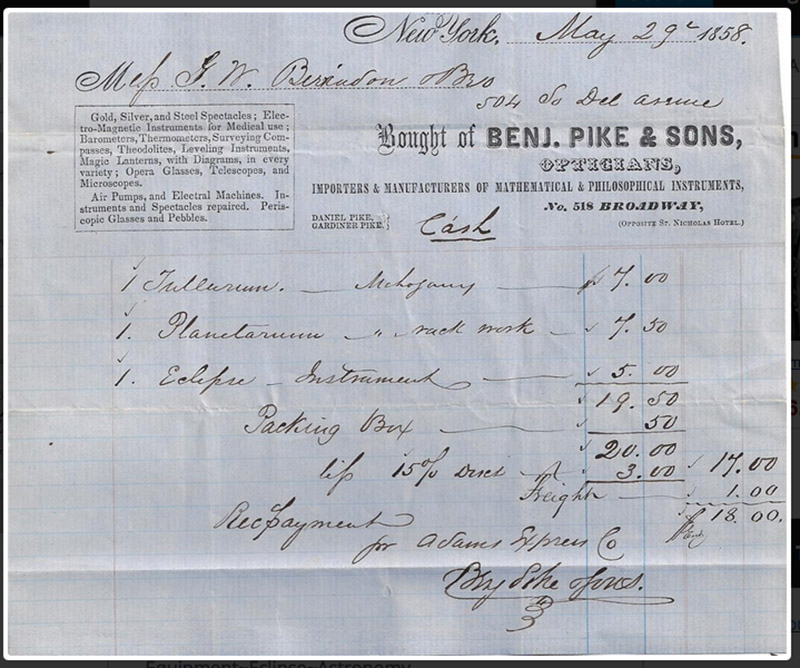 New York, May 29th 1858.
Mess G. W. & Bro
504 So Del avenue
Gold, Silver, and Steel Spectacles; Elec-
tro-Magnetic Instruments for Medical use;
Barometers, Thermometers, Surveying Com-
passes, Theodolites, Leveling Instruments,
Magic Lanterns, with Diagrams, in every
variety; Opera Glasses, Telescopes, and
Microscopes.
Air Pumps, and Electral Machines. In-
struments and Spectacles repaired. Peris-
copic Glasses and Pebbles.
Bought of BENJ. PIKE & SONS,
OPTICIANS,
IMPORTERS & MANUFACTURERS OF MATHEMATICAL & PHILOSOPHICAL INSTRUMENTS,
No. 518 BROADWAY,
(OPPOSITE ST. NICHOLAS HOTEL.)
DANIEL PIKE,
GARDINER PIKE.
Cash
1 Tellurium. — Mahogany — $ 7. 00
1. Planetarium — " rack work — 7. 50
1. Eclipse — Instrument — 5. 00
19. 50
Packing Box — 50
20. 00
less 15% Disct — 3.00 17.00
Freight — 1.00
$ 18. 00.
Rec payment
for Adams Express Co
Benj Pike & Sons.
Equipment-Eclipse-Astronomy